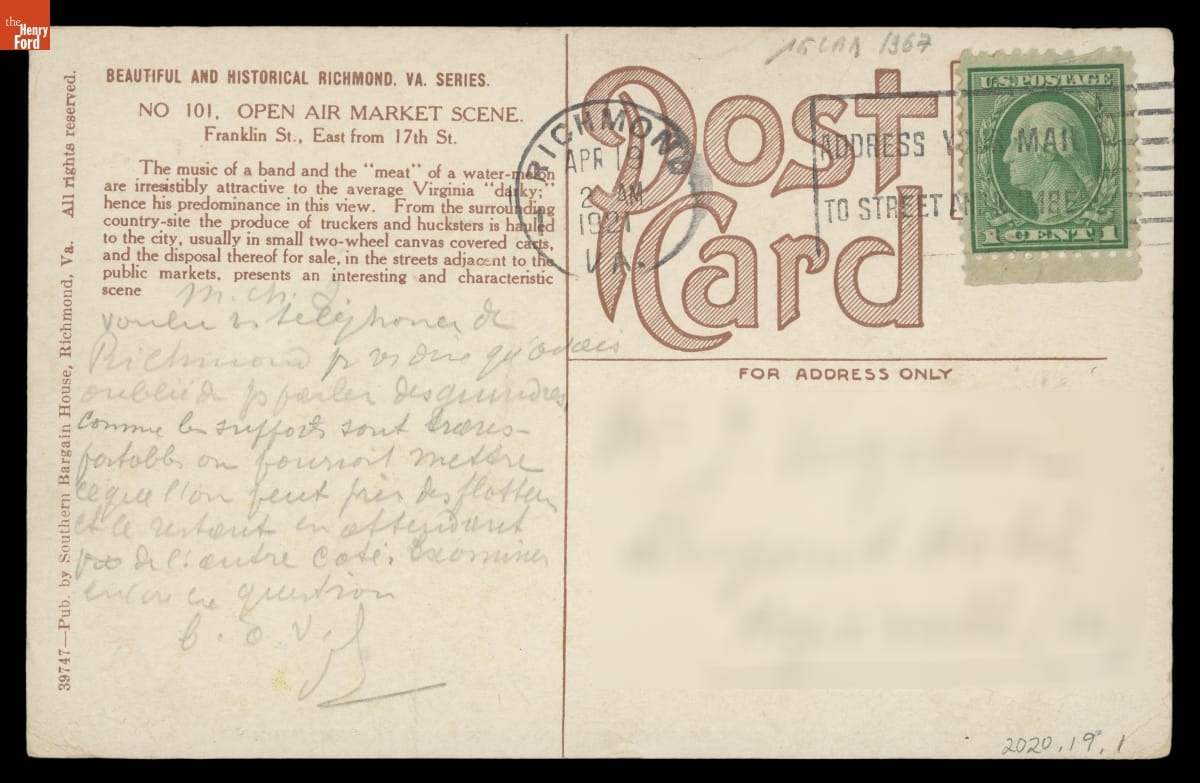 the
Henry
Ford
39747—Pub. by Southern Bargain House, Richmond, Va. All rights reserved.
BEAUTIFUL AND HISTORICAL RICHMOND. VA. SERIES.
NO 101. OPEN AIR MARKET SCENE.
Franklin St., East from 17th St.
The music of a band and the "meat" of a water-melon
are irresistibly attractive to the average Virginia "darky;"
hence his predominance in this view. From the surrounding
country-site the produce of truckers and hucksters is hauled
to the city, usually in small two-wheel canvas covered carts,
and the disposal thereof for sale, in the streets adjacent to the
public markets, presents an interesting and characteristic
scene
M. ch.
voulu vs téléphoner de
Richmond p vs dire qu'avais
oublié de parler des
comme les supports sont trans-
portables on pourrait mettre
ce que l'on peut près des
et le restant en attendant
de l'autre coté. Examiner
encore ce question
1967
Post
Card
RICHMOND
APR 19
2 AM
1921
VA.
ADDRESS YOUR MAIL
TO STREET AND NUMBER
U.S. POSTAGE
1 CENT 1
FOR ADDRESS ONLY
2020.19.1